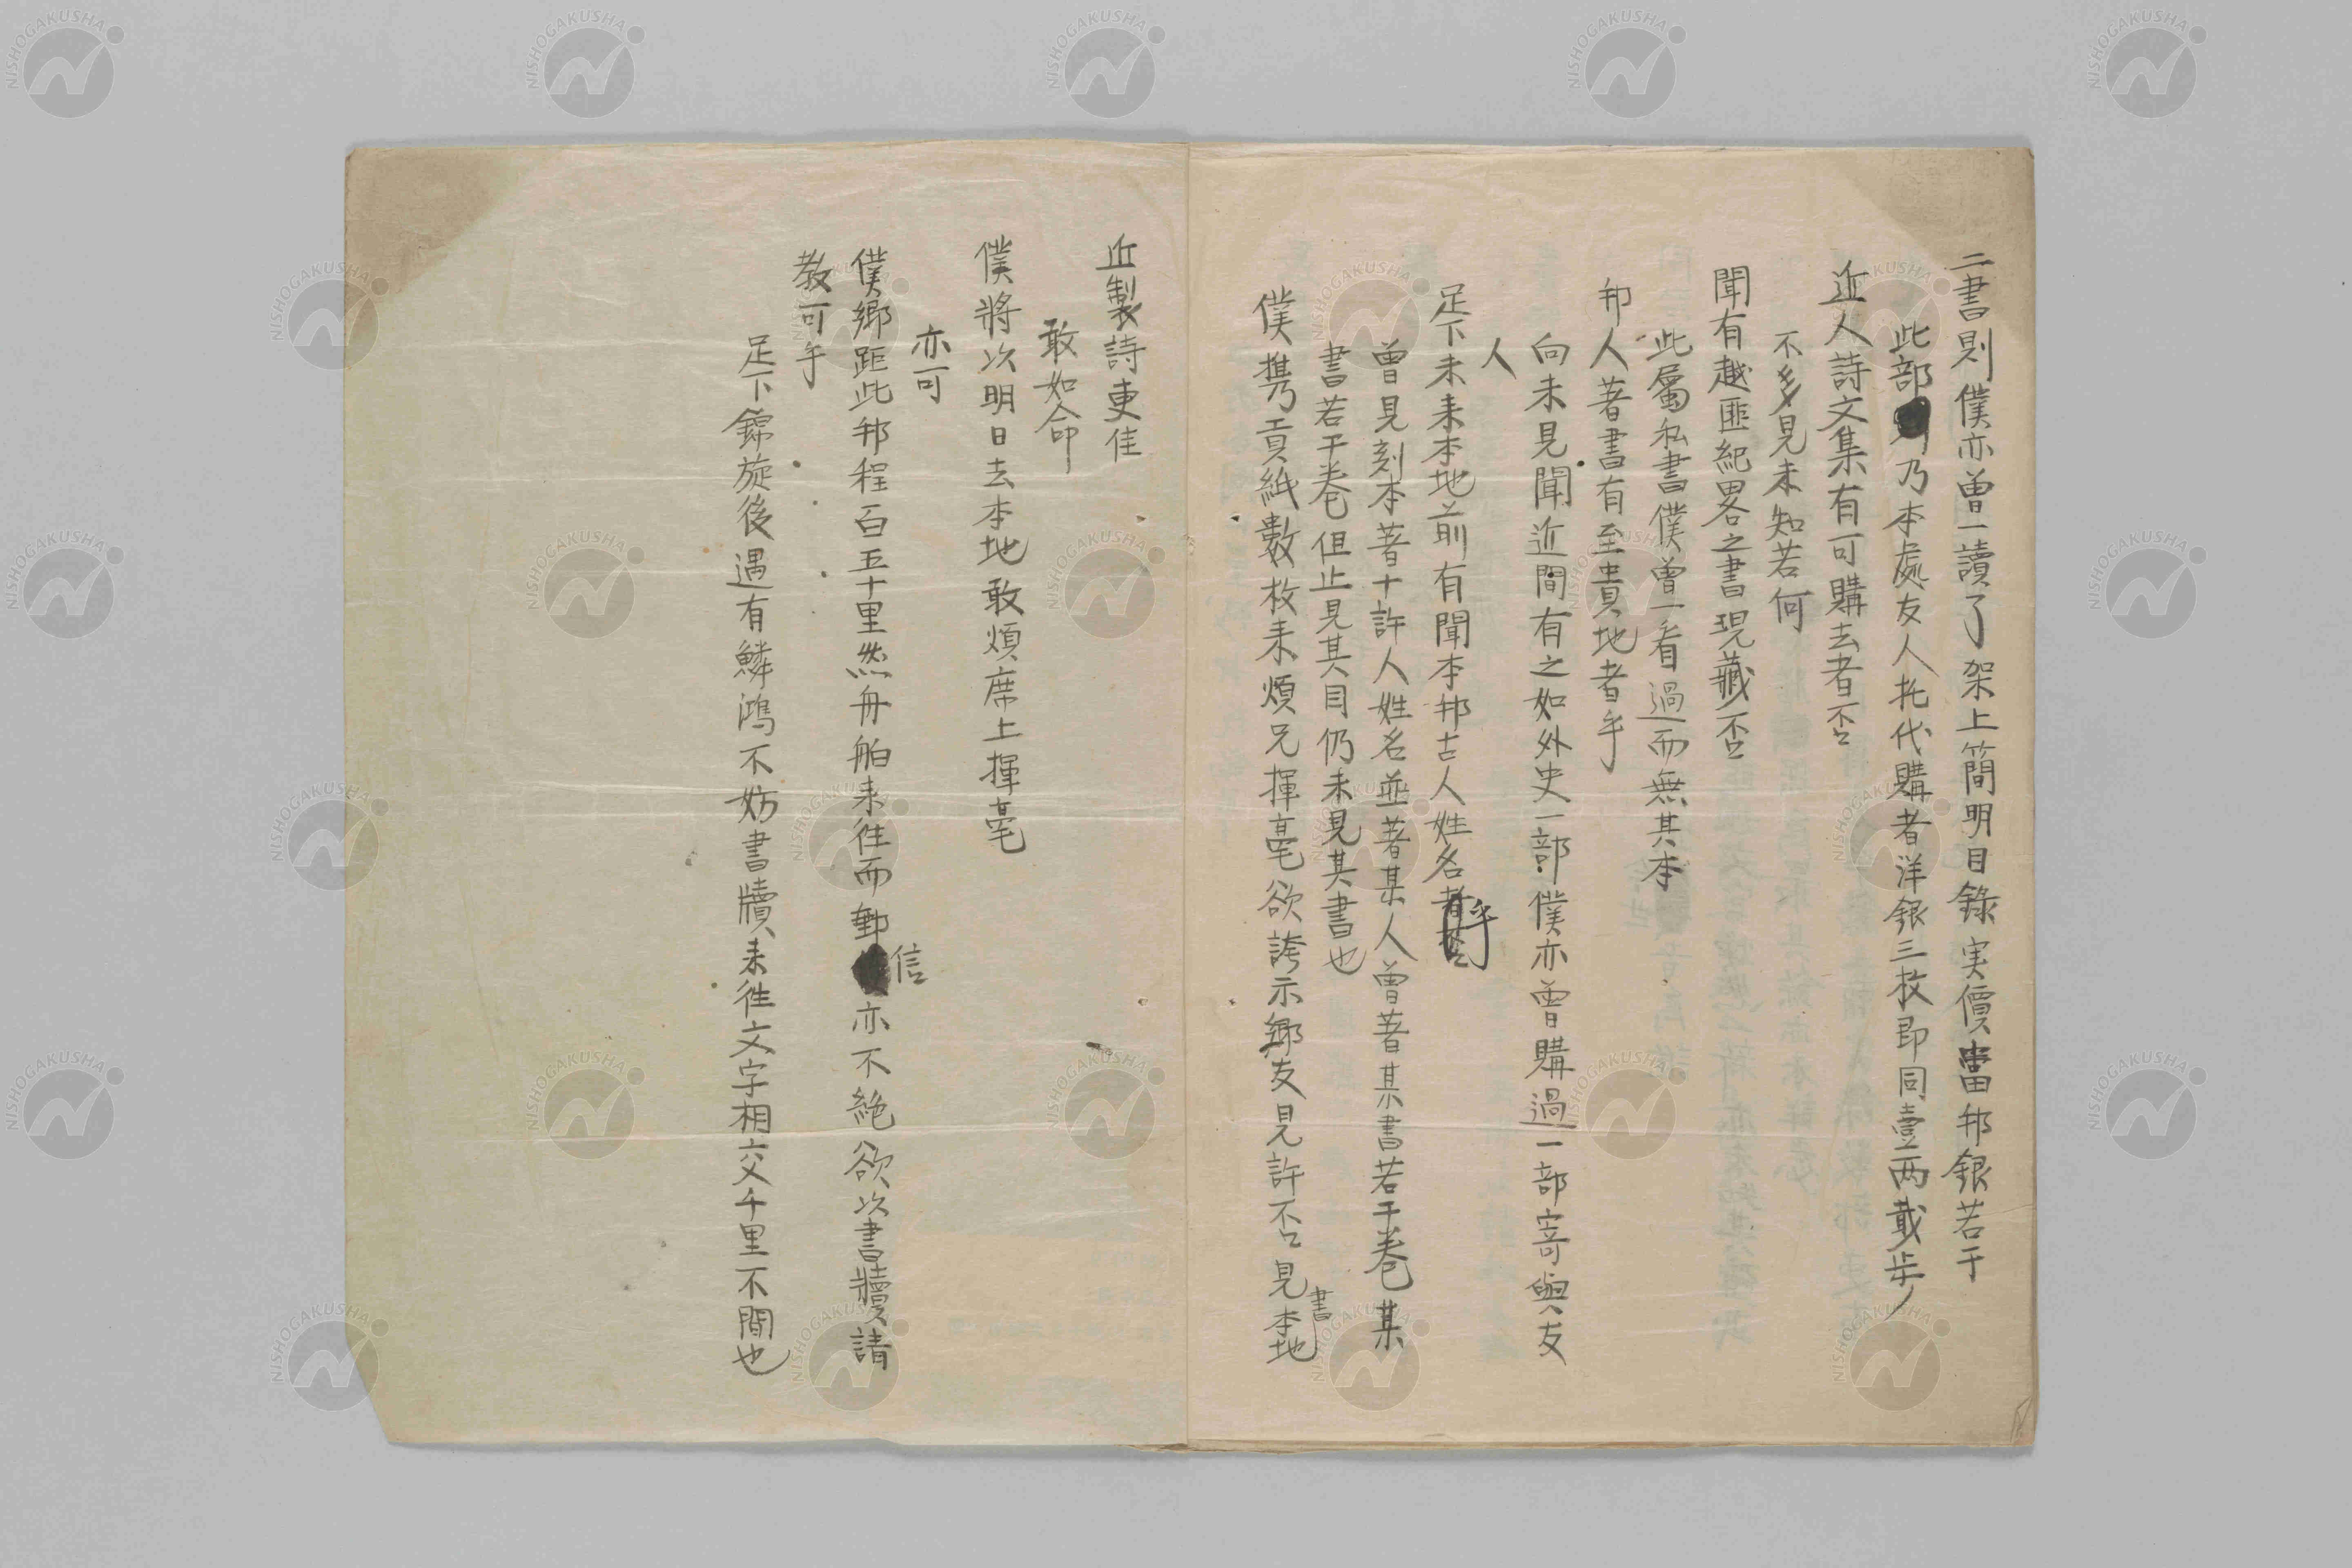 二書則僕亦曾一讀了架上簡明目錄实價當邦銀若干
此部乃本處友人托代購者洋銀三枚即同壹两貳步
近人詩文集有可購去者否
不多見未知若何
聞有越匪紀畧之書現藏否
此屬私書僕曾一看過而無其本
邦人著書有至貴地者乎
向未見聞近間有之如外史一部僕亦曾購過一部寄與友
人
足下未来本地前有聞本邦古人姓名者乎
曾見刻本著十許人姓名並著某人曾著某書若干卷某
書若干卷但止見其目仍未見其書也
僕携貢紙數枚来煩兄揮毫欲誇示鄉友見許否見書本地
近製詩更佳
敢如命
僕將以明日去本地敢煩席上揮毫
亦可
僕鄉距此邦程百五十里然舟舶来往而郵信亦不絶欲以書牘請
教可乎
足下錦旋後遇有鱗鴻不妨書牘来往文字相交千里不間也
NISHOGAKUSHA